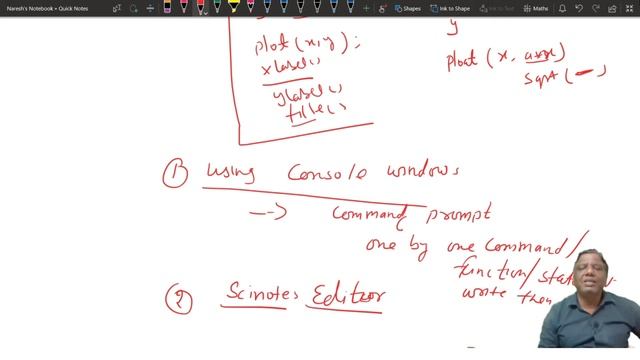 Naresh's Notebook » Quick Notes
Shapes
Ink to Shape
Ink to Text
Maths
plot (x,y);
xlabel()
ylabel()
title()
y
plot (x,
sqrt (
① using Console windows
--> Command prompt
one by one command/
function/
write then
② Scinotes Editor